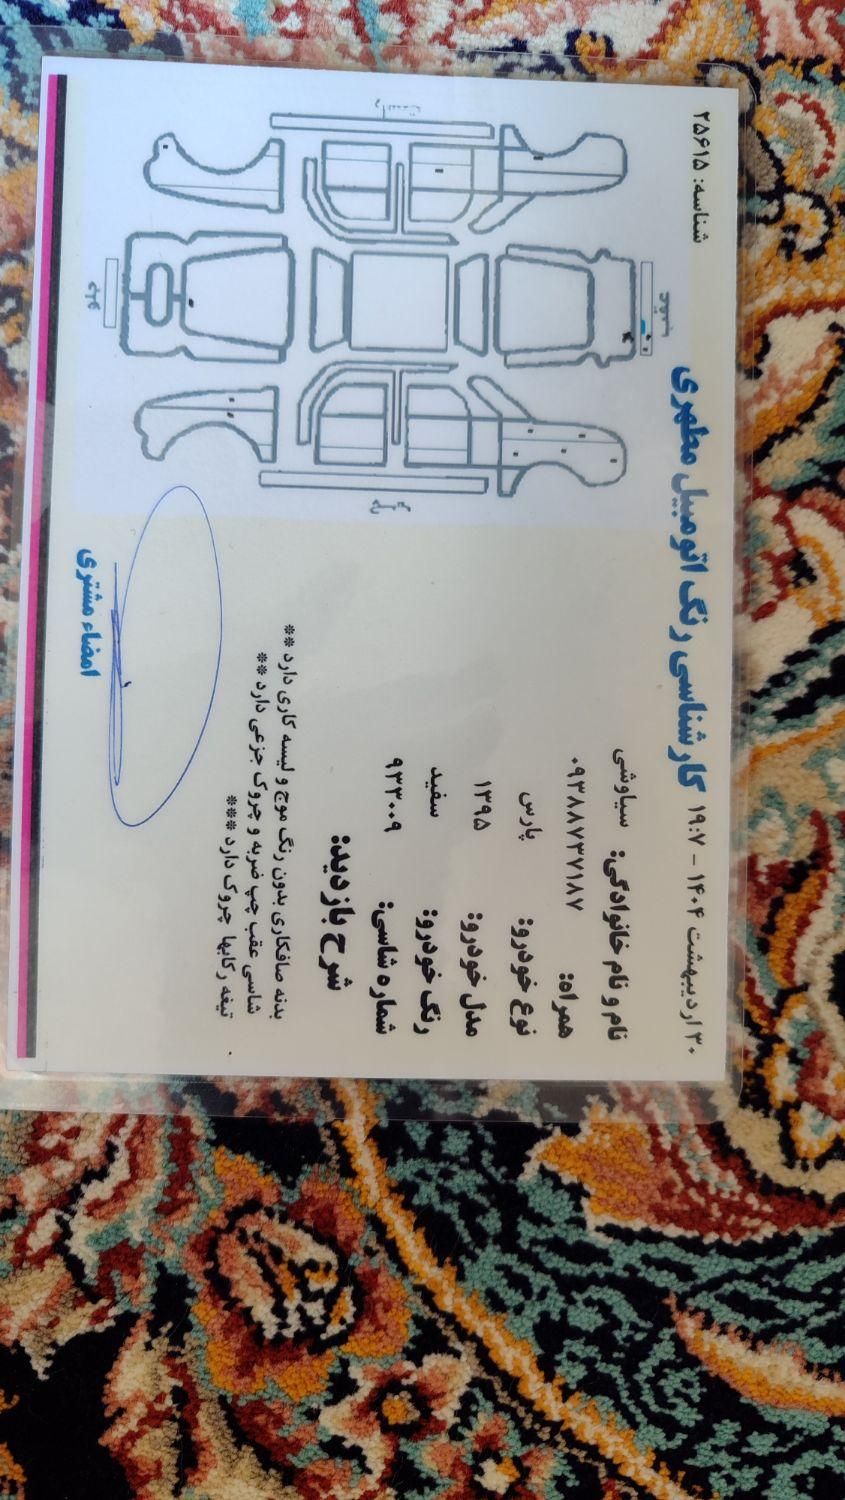 ۳۰ اردیبهشت ۱۴۰۴ - ۱۹:۷
کارشناسی رنگ اتومبیل مطهری
شناسه: ۲۵۶۱۵
نام و نام خانوادگی: سیاوشی
همراه: ۰۹۳۸۸۷۳۷۱۸۷
نوع خودرو: پارس
مدل خودرو: ۱۳۹۵
رنگ خودرو: سفید
شماره شاسی: ۹۳۳۰۰۹
شرح بازدید:
بدنه صافکاری بدون رنگ موج و لیسه کاری دارد **
شاسی عقب چپ ضربه و چروک جزعی دارد **
تیغه رکابها چروک دارد ***
امضاء مشتری